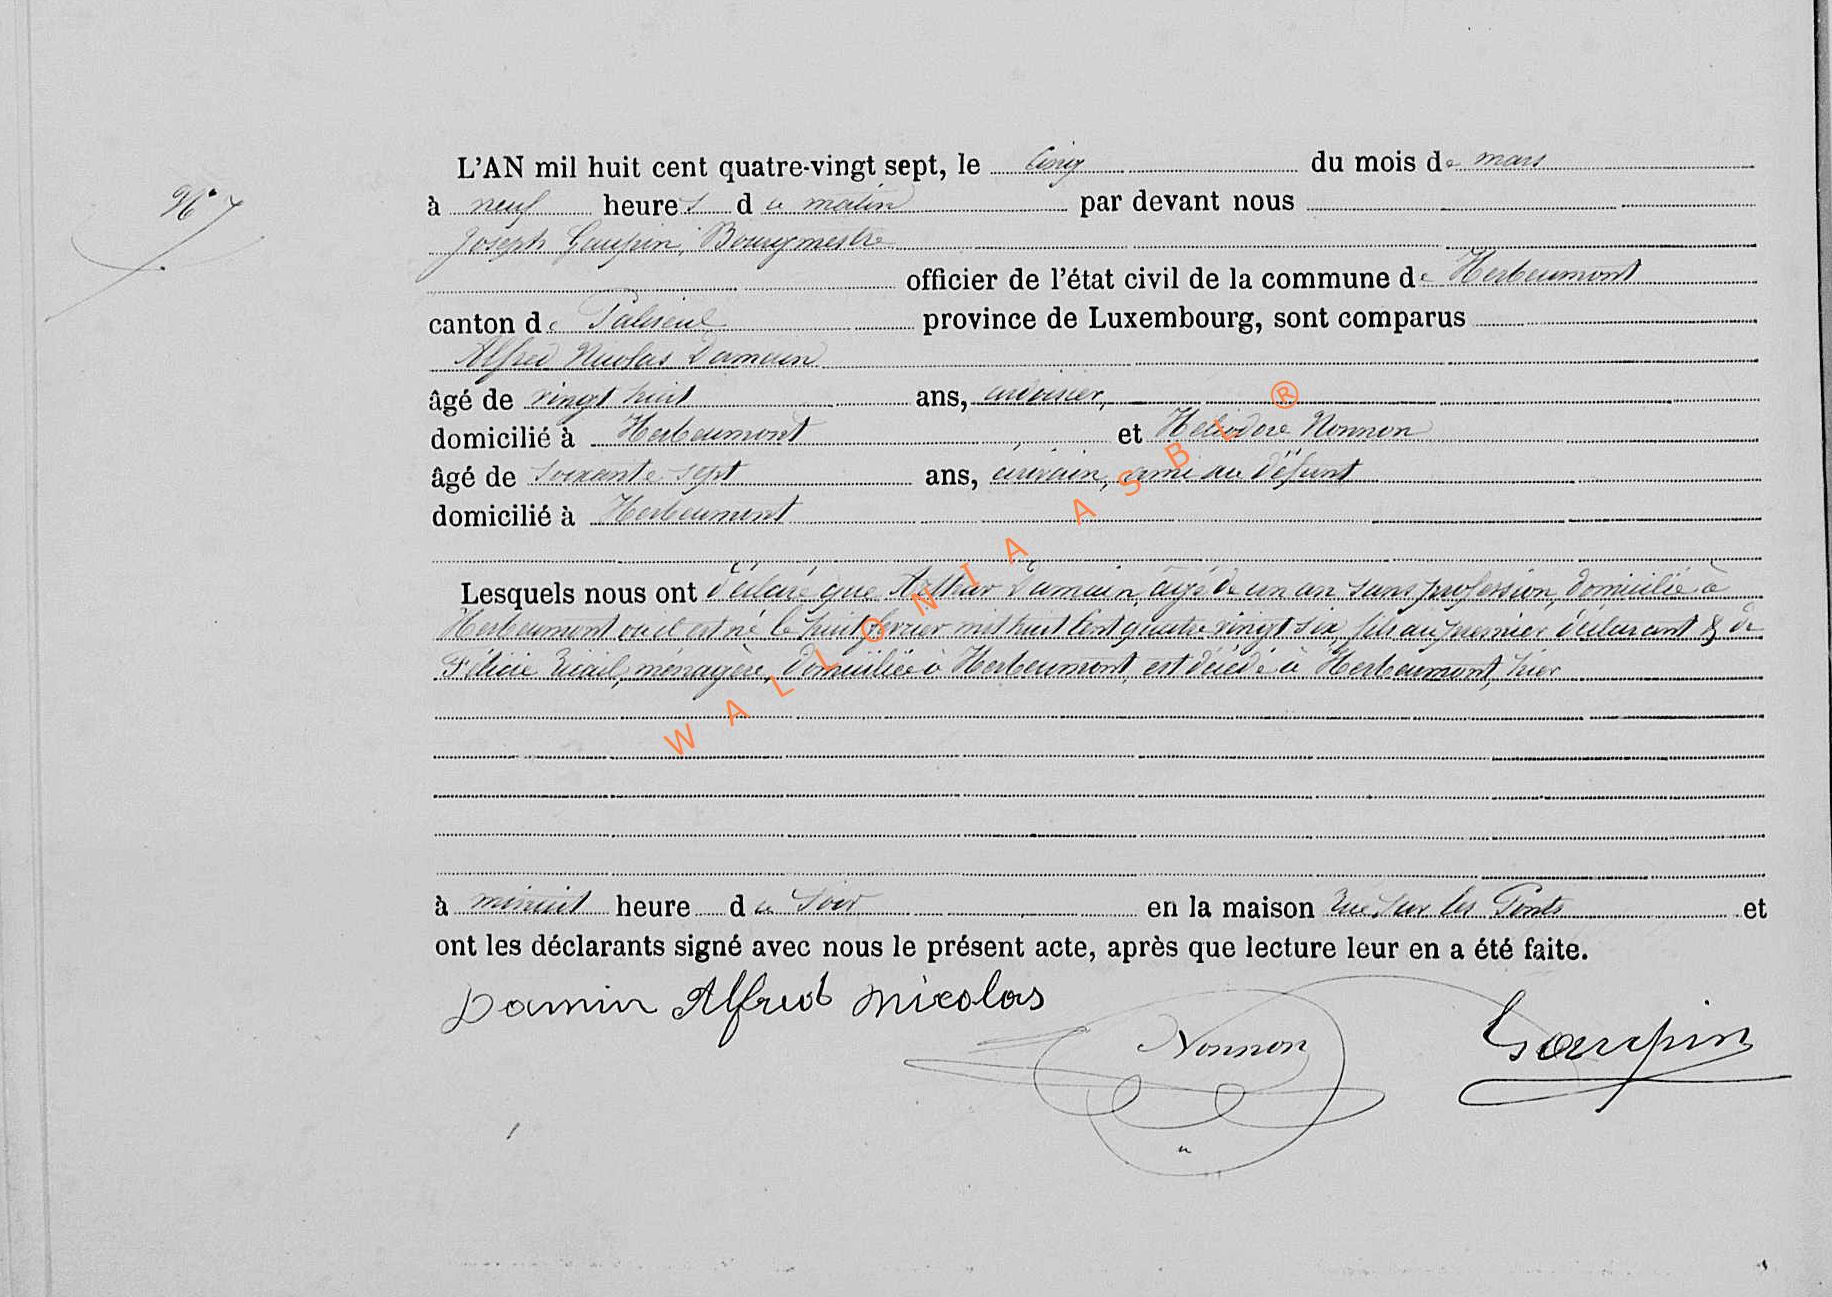 N° 7
L'AN mil huit cent quatre-vingt sept, le Cinq du mois de mars
à neuf heures du matin par devant nous
Joseph Gaupin, Bourgmestre
officier de l'état civil de la commune de Herbeumont
canton de Paliseul province de Luxembourg, sont comparus
Alfred Nicolas Damain
âgé de vingt huit ans, ardoisier,
domicilié à Herbeumont et Héliodore Nonnon
âgé de soixante sept ans, ami au défunt
domicilié à Herbeumont
Lesquels nous ont déclaré que Arthur Damain, âgé de un an sans profession, domicilié à
Herbeumont où il est né le huit fevrier mil huit Cent quatre vingt six, fils au premier déclarant & de
Félicie ménagère, domiciliée à Herbeumont, est décédé à Herbeumont, hier
à minuit heure du soir en la maison rue sur les Ponts et
ont les déclarants signé avec nous le présent acte, après que lecture leur en a été faite.
Damin Alfred Nicolas
Nonnon
Gaupin
WALLONIA ASBL ®